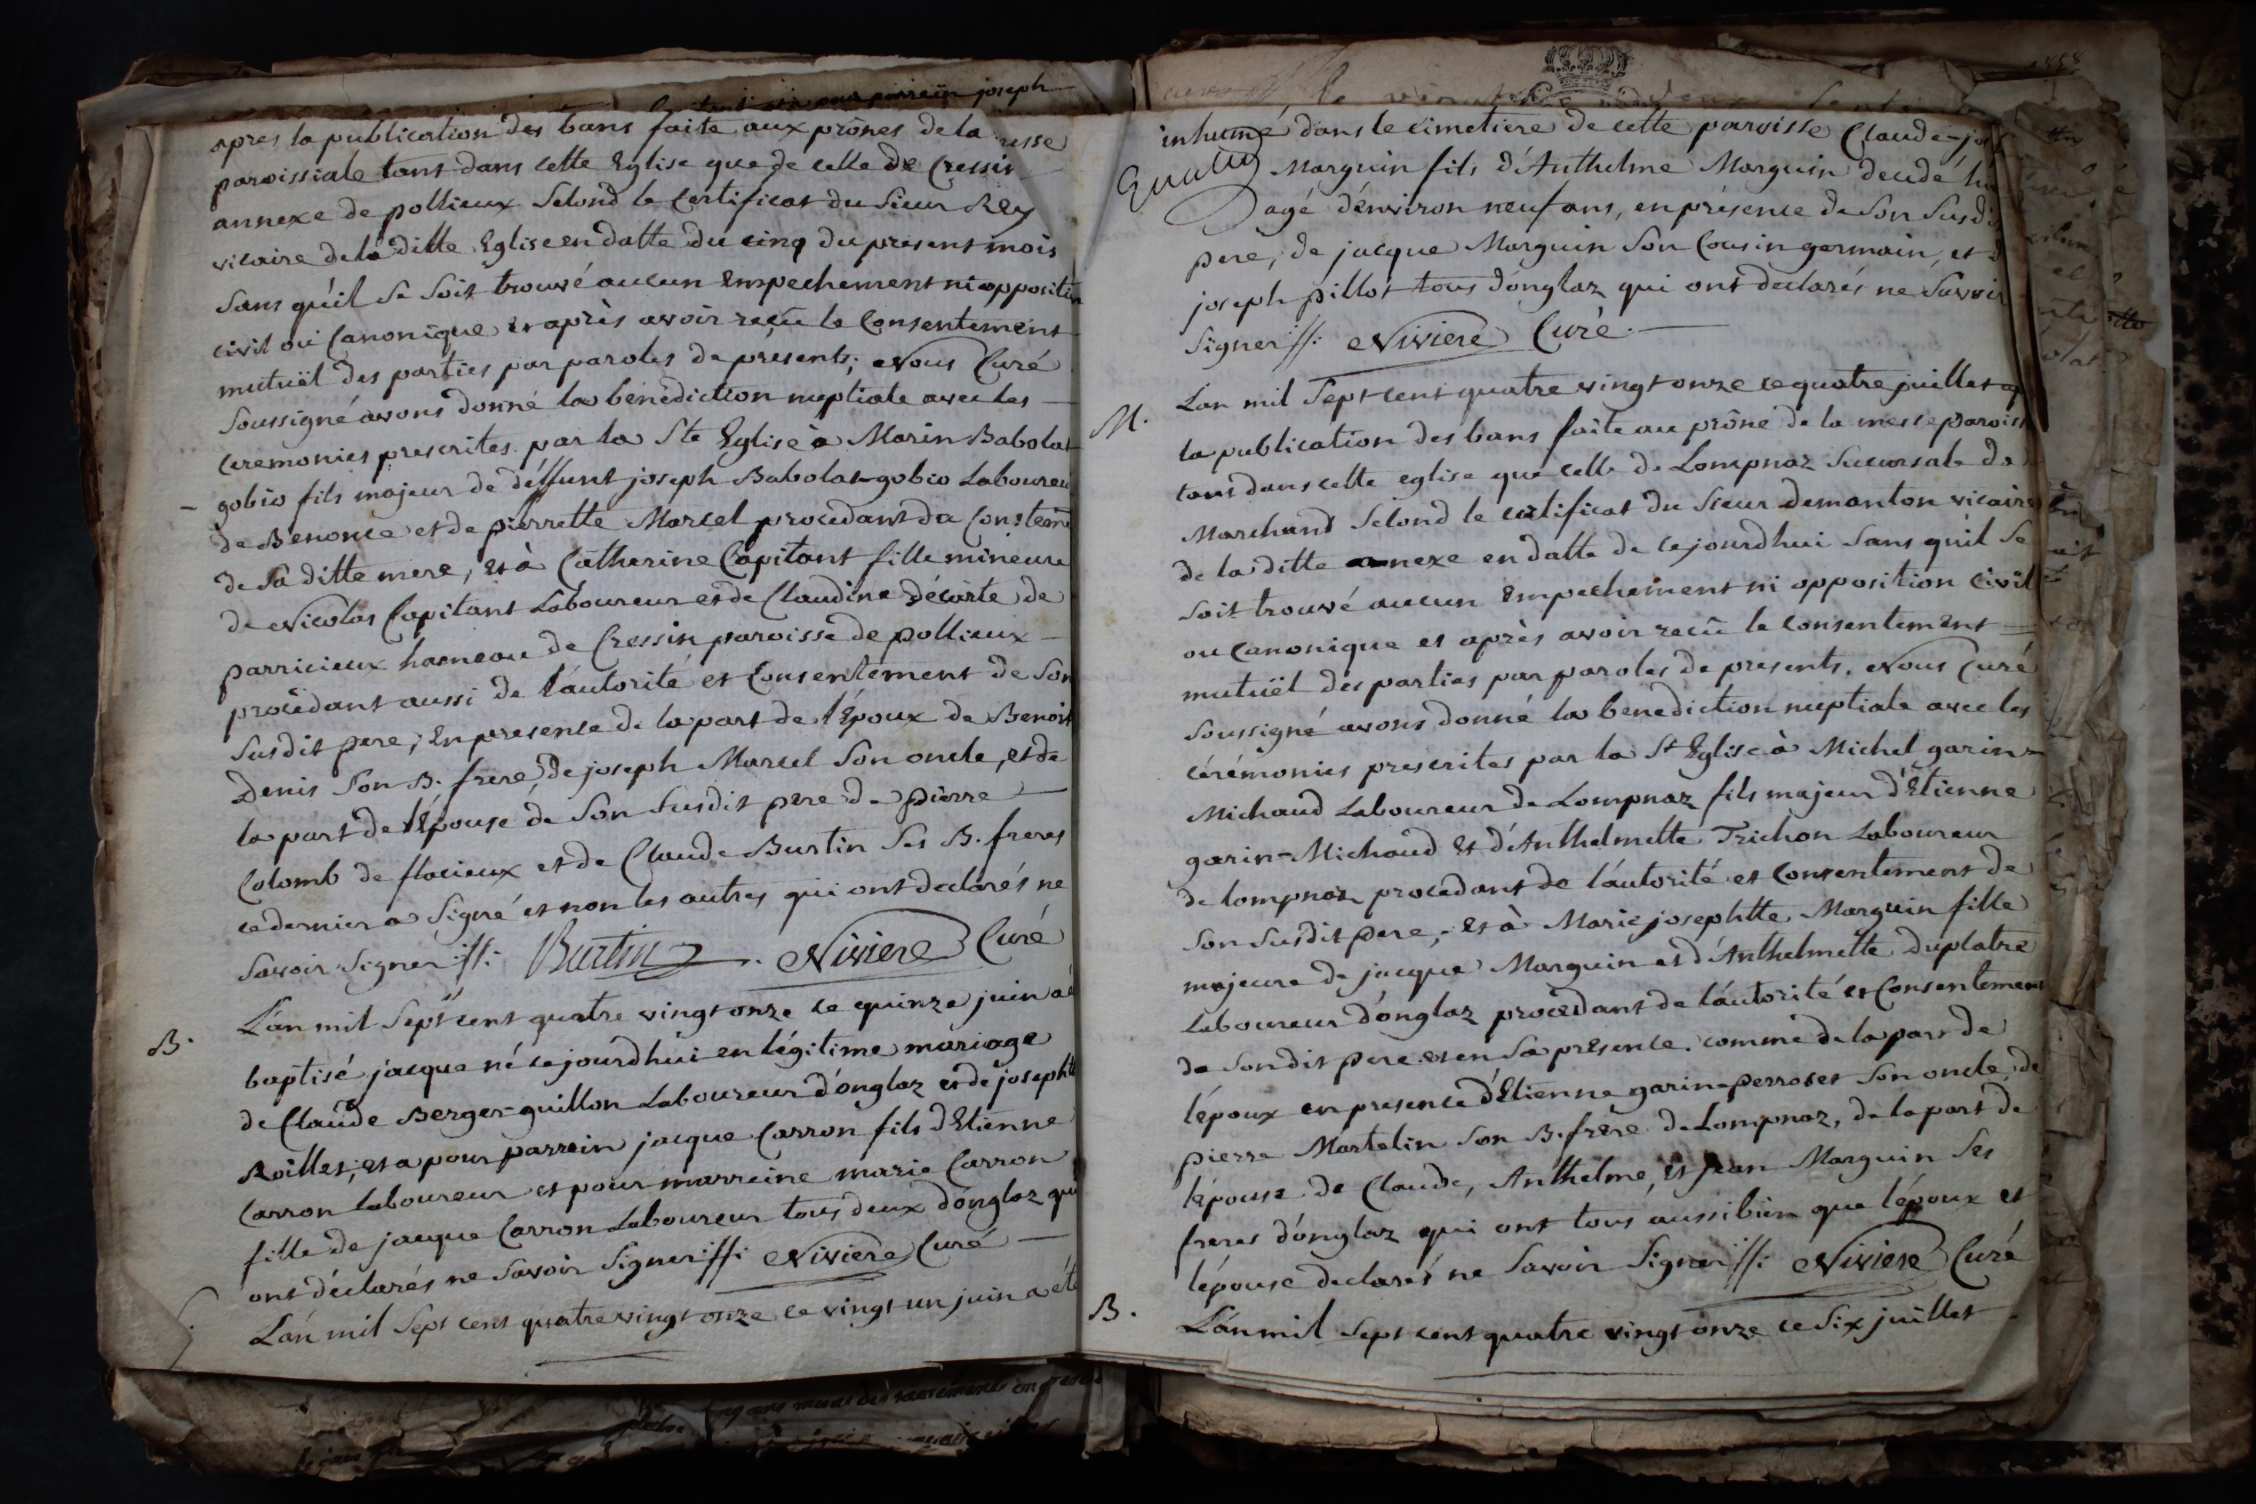 apres la publication des bans faite aux prônes de la messe
paroissiale tant dans cette Eglise que de celle de Cressin
annexe de pollieux Selond le Certificat du Sieur Rey
vicaire de la ditte Eglise en datte du cinq du present mois
Sans qu'il se soit trouvé aucun Empechement ni opposition
civil ou Canonique et après avoir reçu le Consentement
mutuël des parties par paroles de presents; Nous Curé
Soussigné avons donné la bénédiction nuptiale avec les
Ceremonies prescrites par la Ste Eglise à Marin Babolat
gobio fils majeur de déffunt joseph Babolat-gobio Laboureu
de Benonce et de pierrette Marcel procedant du Constem
de Sa ditte mere, et à Catherine Capitant fille mineure
de Nicolas Capitant Laboureur et de Claudine décorte de
parricieux hameau de Cressin paroisse de pollieux
procédant aussi de l'autorité et Consentement de Son
Susdit pere, En presence de la part de l'Epoux de Benoit
Denis Son B. frere, de joseph Marcel Son oncle, et de
la part de l'Epouse de Son susdit pere de pierre
Colomb de flacieux et de Claude Burtin Ses B. freres
ce dernier a Signé et non les autres qui ont declarés ne
Savoir Signer ://: Burtin . Niviere Curé
B.
L'an mil Sept cent quatre vingt onze ce quinze juin a é
baptisé jacque né cejourdhui en légitime mariage
de Claude Berger-guillon Laboureur d'onglaz et de josephte
Roillet; et a pour parrein jacque Carron fils d'Etienne
Carron laboureur et pour marreine marie Carron
fille de jacque Carron Laboureur tous deux d'onglaz qui
ont déclarés ne Savoir Signer ://: Niviere Curé
L'an mil Sept cent quatre vingt onze ce vingt un juin a été
inhumé dans le cimetiere de cette paroisse Claude-jos
Marguin fils d'Anthelme Marguin decedé hi
agé d'environ neuf ans, en présence de Son Susdi
pere, de jacque Marguin Son Cousin germain, et d
joseph pillot tous d'onglaz qui ont declarés ne Savoir
Signer ://: Niviere Curé.
M.
L'an mil Sept cent quatre vingt onze ce quatre juillet ap
la publication des bans faite au prône de la messe paroiss
tant dans cette eglise que celle de Lompnaz Sucursale de
Marchand Selond le certificat du Sieur demanton vicaire
de la ditte annexe en datte de cejourdhui Sans qu'il Se
Soit trouvé aucun Empechement ni opposition Civil
ou Canonique et après avoir reçu le Consentement
mutuël des parties par paroles de presents. Nous Curé
Soussigné avons donné la benediction nuptiale avec les
cérémonies prescrites par la Ste Eglise à Michel garin-
Michaud Laboureur de Lompnaz fils majeur d'Etienne
garin-Michaud et d'Anthelmette Trichon Laboureur
de lompnaz procedant de l'autorité et Consentement de
Son Susdit pere, et à Marie josephtte Marguin fille
majeure de jacque Marguin et d'Anthelmette duplatre
Laboureur d'onglaz procedant de l'autorité et Consentement
de Son dit pere et en Sa presence. comme de la part de
l'époux en presence d'Etienne garin-perroset Son oncle, de
pierre Martelin Son B. frère de Lompnaz, de la part de
l'épouse de Claude, Anthelme, et jean Marguin Ses
freres d'onglaz qui ont tous aussi bien que l'époux et
l'épouse declarés ne Savoir Signer ://: Niviere Curé
B.
L'an mil Sept cent quatre vingt onze ce Six juillet